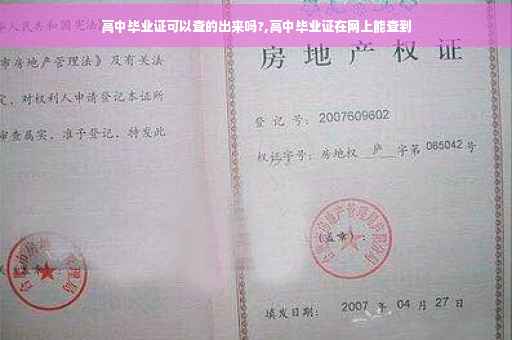 高中毕业证可以查的出来吗?,高中毕业证在网上能查到
华人民共和国宪法
市房地产管理法》及有关法
定，对权利人申请登记本证所
审查属实，准予登记，特发此
房地产权证
登记号：2007609602
权证字号：房地权 庐 字第 065042 号
（盖章）：
填发日期： 2007 年 04 月 27 日